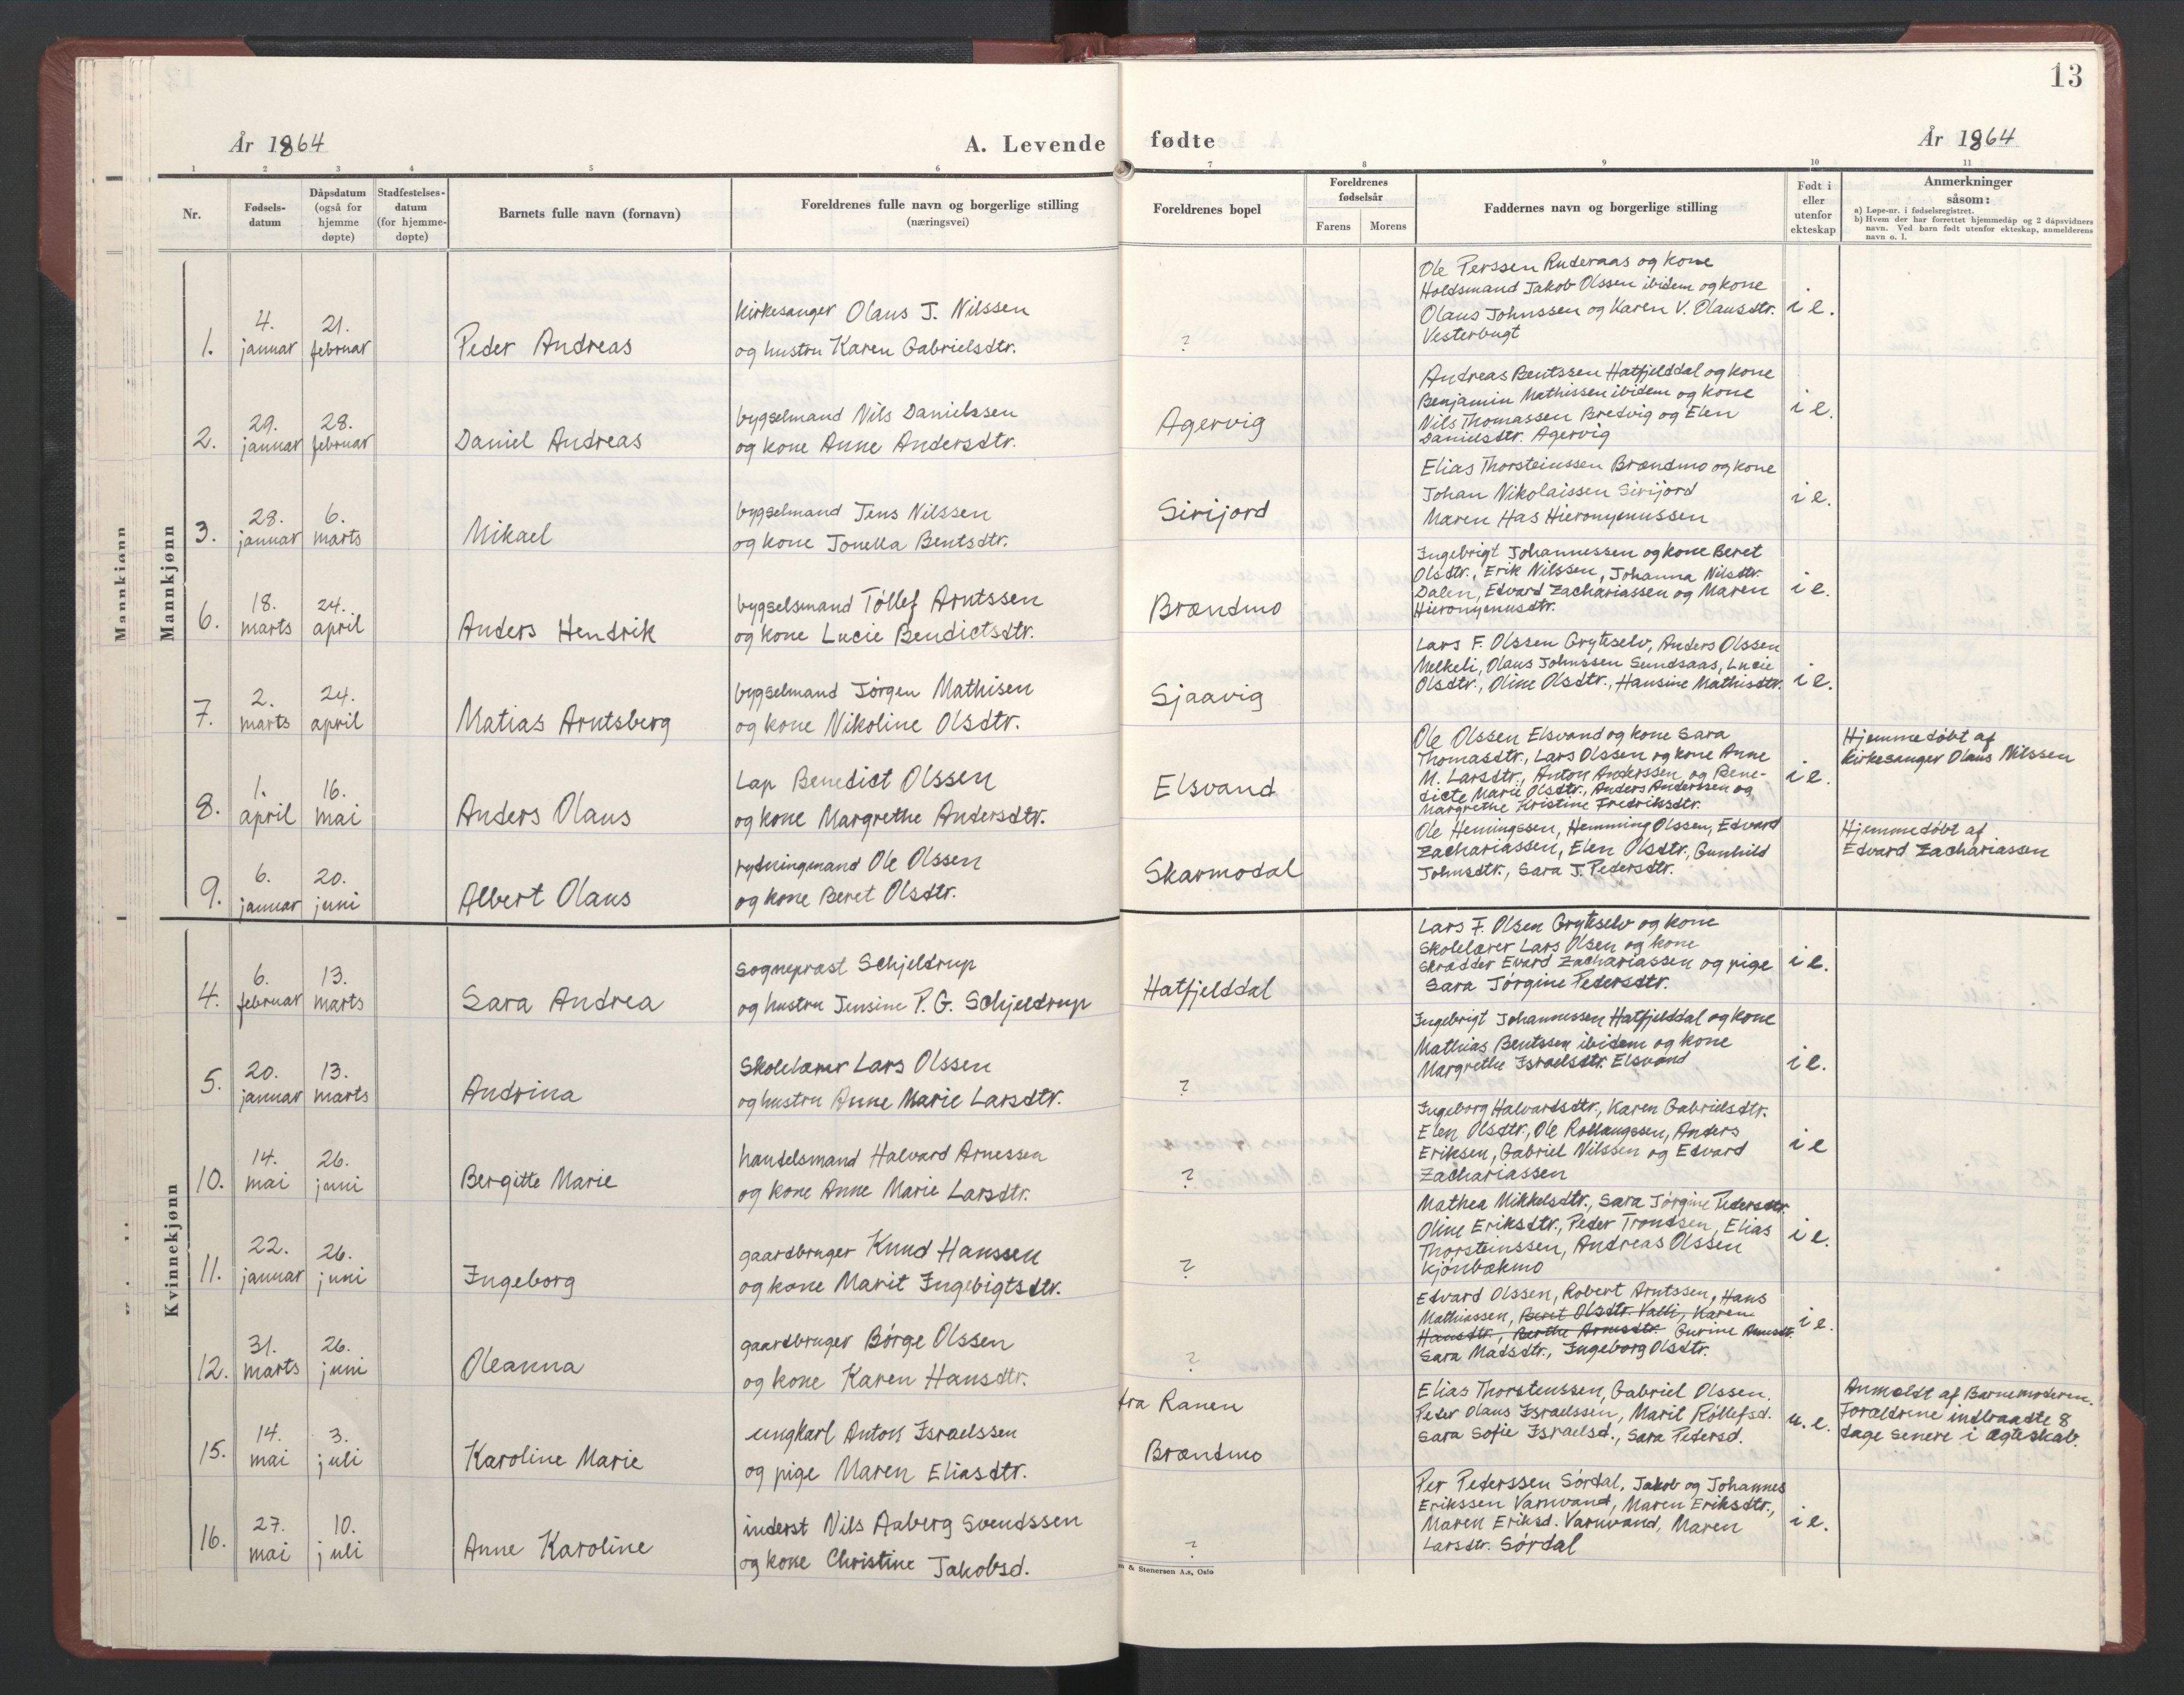 13
År 1864
A. Levende fødte
År 1864
1 2 3 4 5 6 7 8 9 10 11
Nr.
Fødsels-
datum
Dåpsdatum
(også for
hjemme
døpte)
Stadfestelses-
datum
(for hjemme-
døpte)
Barnets fulle navn (fornavn)
Foreldrenes fulle navn og borgerlige stilling
(næringsvei)
Foreldrenes bopel
Foreldrenes
fødselsår
Farens Morens
Faddernes navn og borgerlige stilling
Født i
eller
utenfor
ekteskap
Anmerkninger
såsom:
a) Løpe-nr. i fødselsregistret.
b) Hvem der har forrettet hjemmedåp og 2 dåpsvidners
navn. Ved barn født utenfor ekteskap, anmelderens
navn o. l.
Mannkjønn
Mannkjønn
1.
4.
januar
21.
februar
Peder Andreas
Kirkesanger Olaus J. Nilssen
og hustru Karen Gabrielsdtr.
?
Ole Perssen Ruderaas og kone
Holdsmand Jakob Olssen ibidem og kone
Olaus Johnssen og Karen V. Olausdtr.
Vesterbugt
i e.
2.
29.
januar
28.
februar
Daniel Andreas
bygselmand Nils Danielssen
og kone Anne Andersdtr.
Agervig
Andreas Bentssen Hatfjelddal og kone
Benjamin Mathissen ibidem og kone
Nils Thomassen Bredvig og Elen
Danielsdtr. Agervig
i e.
3.
28.
januar
6.
marts
Mikael
bygselmand Jens Nilssen
og kone Jonella Bentsdtr.
Sirijord
Elias Thorsteinssen Brændmo og kone
Johan Nikolaissen Sirijord
Maren Has Hieronymussen
i e.
6.
18.
marts
24.
april
Anders Hendrik
bygselsmand Tóllef Arntssen
og kone Lucie Bendictsdtr.
Brændmo
Ingebrigt Johannessen og kone Beret
Olsdtr., Erik Nilssen, Johanna Nilsdtr.
Dalen, Edvard Zachariassen og Maren
Hieronymusdtr.
i e.
7.
2.
marts
24.
april
Matias Arntsberg
bygselmand Jørgen Mathisen
og kone Nikoline Olsdtr.
Sjaavig
Lars F. Olssen Gryteselv, Anders Olssen
Melkeli, Olaus Johnssen Sundsaas, Lucie
Olsdtr., Oline Olsdtr., Hansine Mathisdtr.
i e.
8.
1.
april
16.
mai
Anders Olaus
Lap Benedict Olssen
og kone Margrethe Andersdtr.
Elsvand
Ole Olssen Elsvand og kone Sara
Thomasdtr., Lars Olssen og kone Anne
M. Larsdtr., Anton Anderssen og Bene-
dicte Marie Olsdtr., Anders Anderssen og
Margrethe Kristine Fredriksdtr.
i e.
Hjemmedöbt af
Kirkesanger Olaus Nilssen
9.
6.
januar
20.
juni
Albert Olaus
rydningsmand Ole Olssen
og kone Beret Olsdtr.
Skarmodal
Ole Hemingssen, Hemming Olssen, Edvard
Zachariassen, Elen Olsdtr., Gunhild
Johnsdtr., Sara J. Pedersdtr.
Hjemmedöbt af
Edvard Zachariassen
Kvinnekjønn
4.
6.
februar
13.
marts
Sara Andrea
Sogneprast Schjeldrup
og hustru Jensine P. G. Schjeldrup
Hatfjelddal
Lars F. Olsen Gryteselv og kone
Skolelærer Lars Olsen og kone
Skrædder Evard Zachariassen og pige
Sara Jørgine Pedersdtr.
i e.
5.
20.
januar
13.
marts
Andrina
Skolelærer Lars Olssen
og hustru Anne Marie Larsdtr.
?
Ingebrigt Johannessen Hatfjelddal og kone
Mathias Bentssen ibidem og kone
Margrethe Israelsdtr. Elsvand
i e.
10.
14.
mai
26.
juni
Bergitte Marie
handelsmand Halvard Arnessen
og kone Anne Marie Larsdtr.
?
Ingeborg Halvardsdtr., Karen Gabrielsdtr.
Elen Olsdtr., Ole Rollaugssen, Anders
Eriksen, Gabriel Nilssen og Edvard
Zachariassen
i e
11.
22.
januar
26.
juni
Ingeborg
gaardbruger Knud Hanssen
og kone Marit Ingebigtsdtr.
?
Mathea Mikkelsdtr., Sara Jörgine Pedersdtr.
Oline Eriksdtr., Peder Trondsen, Elias
Thorsteinssen, Andreas Olssen
Kjönbækmo
i e.
12.
31.
marts
26.
juni
Oleanna
gaardbruger Börge Olssen
og kone Karen Hansdtr.
?
Edvard Olssen, Robert Arntssen, Hans
Mathiassen, Beret Olsdtr. Valli, Karen
Hansdtr., Berthe Arnesdtr. Gurine Arnesdtr.
Sara Madsdtr., Ingeborg Olsdtr.
i e.
15.
14.
mai
3.
juli
Karoline Marie
ungkarl Anton Israelssen
og pige Maren Eliasdtr.
fra Ranen
Brændmo
Elias Thorstenssen, Gabriel Olssen,
Peder Olaus Israelssen, Marit Róllefsd.
Sara Sofie Israelsd., Sara Pedersd.
u. e.
Anmeldt af Barnemoderen.
Forældrene indtraadte 8
dage senere i ægteskab.
16.
27.
mai
10.
juli
Anne Karoline
inderst Nils Aaberg Svendssen
og kone Christine Jakobsd.
?
Per Pederssen Sórdal, Jakob og Johannes
Erikssen Varnvand, Maren Eriksdtr.,
Maren Eriksd. Varnvand, Maren
Larsdtr. Sørdal
i e.
& Stenersen A.s, Oslo